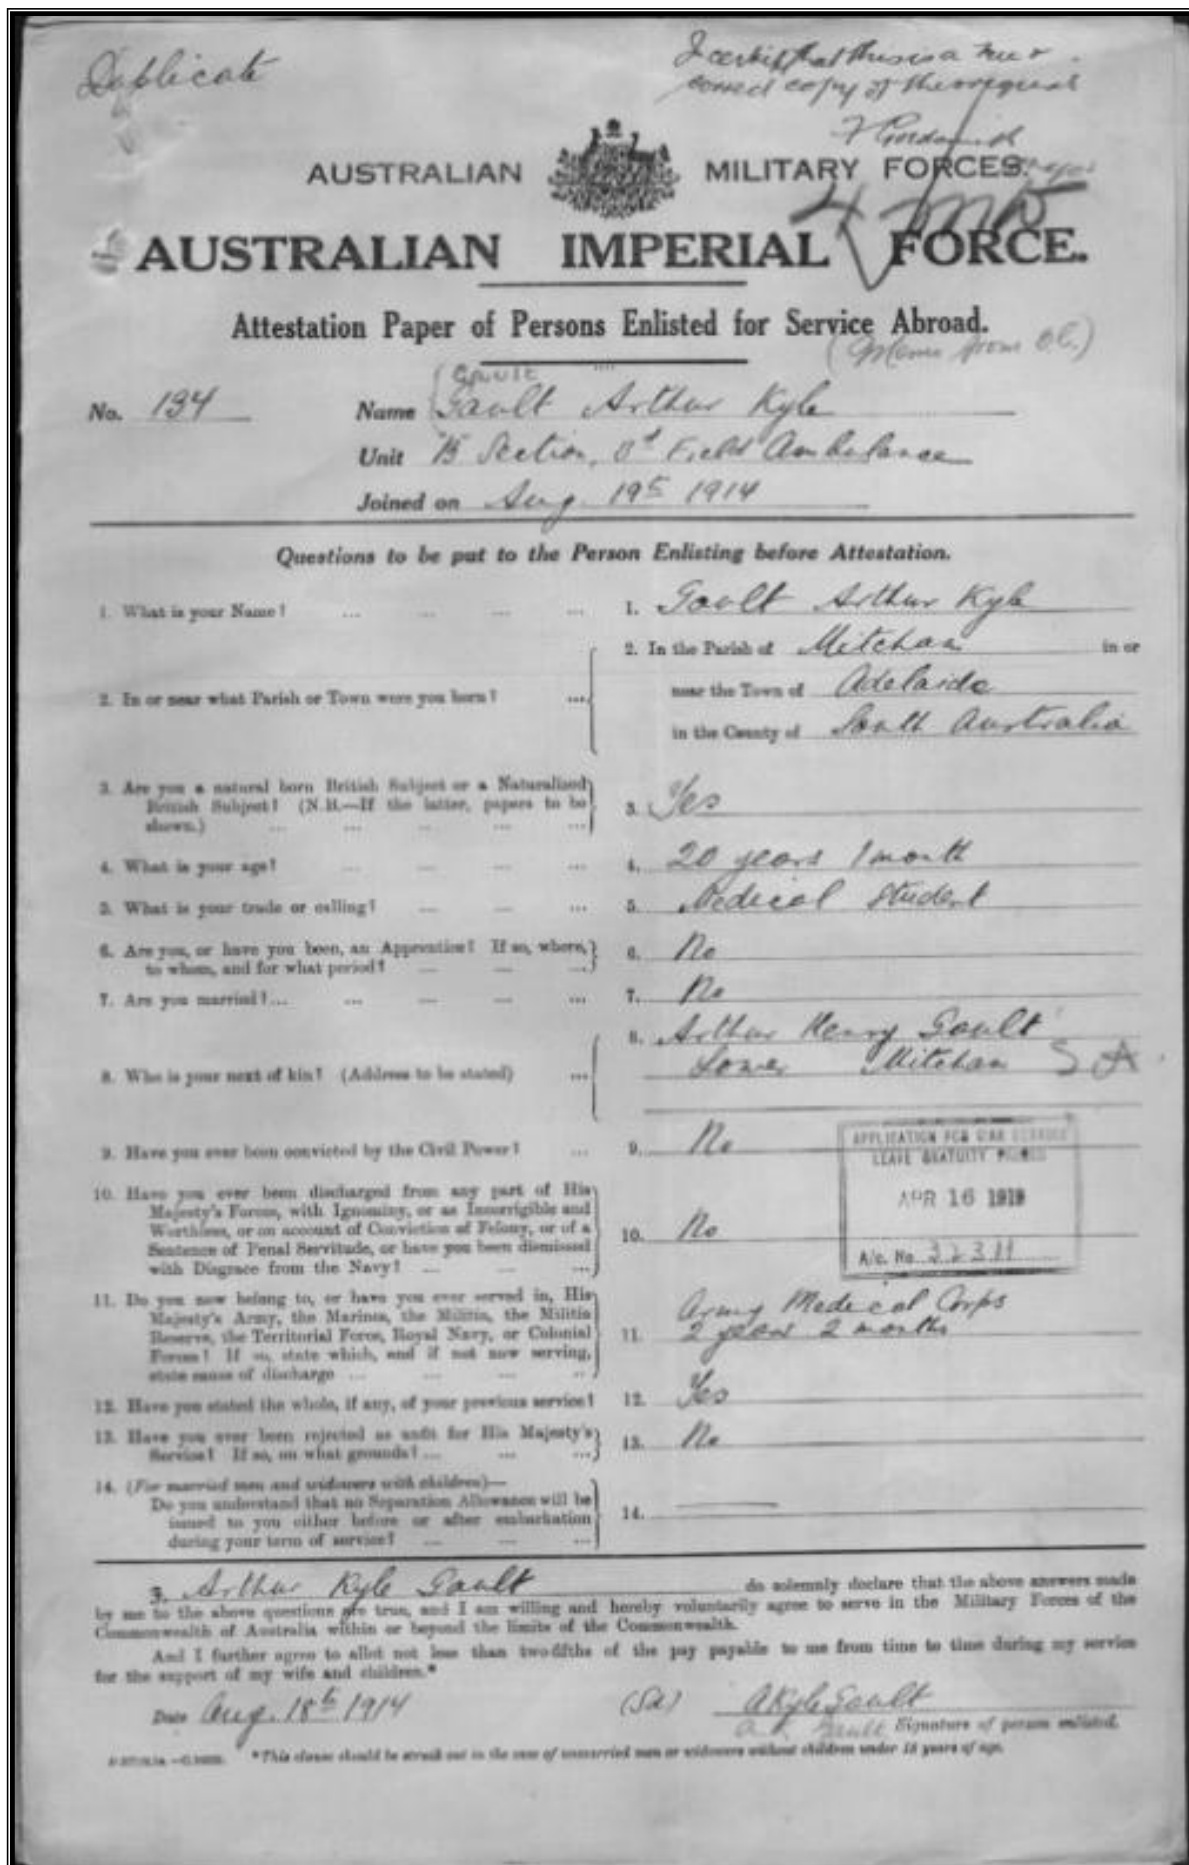 Duplicate
I certify that this is a true &
correct copy of the original
AUSTRALIAN MILITARY FORCES.
AUSTRALIAN IMPERIAL FORCE.
Attestation Paper of Persons Enlisted for Service Abroad.
(Memo from O.C.)
No. 134 Name Gault Arthur Kyle
Unit B Section, 3d Field Ambulance
Joined on Aug. 19th 1914
Questions to be put to the Person Enlisting before Attestation.
1. What is your Name? ... ... ... ... 1. Gault Arthur Kyle
2. In or near what Parish or Town were you born? ... 2. In the Parish of Mitcham in or
near the Town of Adelaide
in the County of South Australia
3. Are you a natural born British Subject or a Naturalized
British Subject? (N.B.—If the latter, papers to be
shown.) ... ... ... ... ... 3. Yes
4. What is your age? ... ... ... ... 4. 20 years 1 month
5. What is your trade or calling? ... ... ... 5. Medical Student
6. Are you, or have you been, an Apprentice? If so, where,
to whom, and for what period? ... ... ... 6. No
7. Are you married? ... ... ... ... ... 7. No
8. Who is your next of kin? (Address to be stated) ... 8. Arthur Henry Gault
Lower Mitcham S A
9. Have you ever been convicted by the Civil Power? ... 9. No
APPLICATION FOR WAR SERVICE
LEAVE GRATUITY
APR 16 1919
A/c. No. 32311
10. Have you ever been discharged from any part of His
Majesty's Forces, with Ignominy, or as Incorrigible and
Worthless, or on account of Conviction of Felony, or of a
Sentence of Penal Servitude, or have you been dismissed
with Disgrace from the Navy? ... ... ... 10. No
11. Do you now belong to, or have you ever served in, His
Majesty's Army, the Marines, the Militia, the Militia
Reserve, the Territorial Force, Royal Navy, or Colonial
Forces? If so, state which, and if not now serving,
state cause of discharge ... ... ... ... 11. Army Medical Corps
2 year 2 months
12. Have you stated the whole, if any, of your previous service? 12. Yes
13. Have you ever been rejected as unfit for His Majesty's
Service? If so, on what grounds? ... ... ... 13. No
14. (For married men and widowers with children)—
Do you understand that no Separation Allowance will be
issued to you either before or after embarkation
during your term of service? ... ... ... 14.
I, Arthur Kyle Gault do solemnly declare that the above answers made
by me to the above questions are true, and I am willing and hereby voluntarily agree to serve in the Military Forces of the
Commonwealth of Australia within or beyond the limits of the Commonwealth.
And I further agree to allot not less than two-fifths of the pay payable to me from time to time during my service
for the support of my wife and children.*
Date Aug. 18th 1914 (Sd) A Kyle Gault
A.K. Gault Signature of person enlisted.
*This clause should be struck out in the case of unmarried men or widowers without children under 18 years of age.